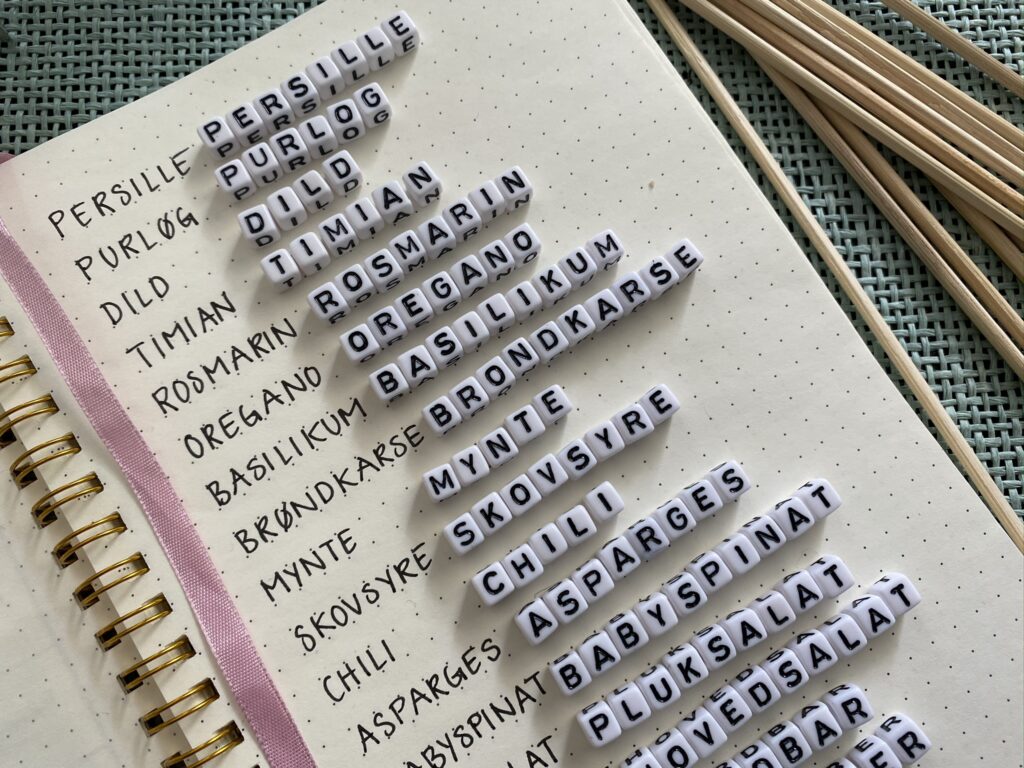 PERSILLE PERSILLE
PURLØG PURLOG
DILD DILD
TIMIAN TIMIAN
ROSMARIN ROSMARIN
OREGANO OREGANO
BASILIKUM BASILIKUM
BRØNDKARSE BRONDKARSE
MYNTE MYNTE
SKOVSYRE SKOVSYRE
CHILI CHILI
ASPARGES ASPARGES
ABYSPINAT BABYSPINAT
PLUKSALAT
HOVEDSALAT